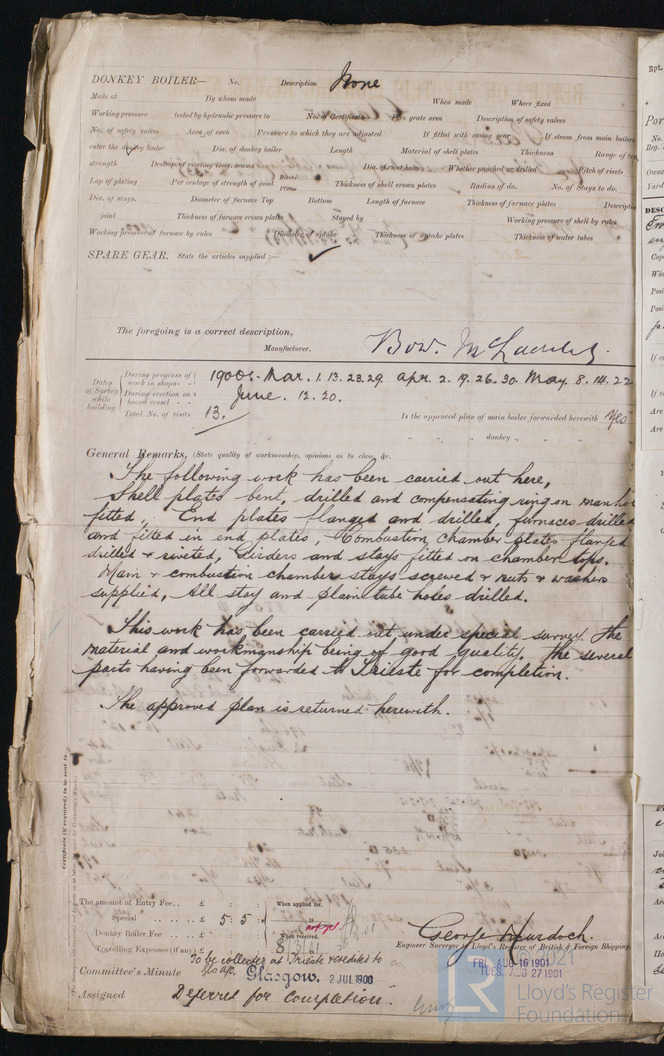 DONKEY BOILER— No. Description None
Made at By whom made When made Where fixed
Working pressure tested by hydraulic pressure to No. of Certificate Fire grate area Description of safety valves
No. of safety valves Area of each Pressure to which they are adjusted If fitted with easing gear If steam from main boilers
enter the donkey boiler Dia. of donkey boiler Length Material of shell plates Thickness Range of
strength Descrip. of riveting long. seams Dia. of rivet holes Whether punched or drilled Pitch of rivets
Lap of plating Per centage of strength of joint Rivets Thickness of shell crown plates Radius of do. No. of Stays to do.
Dia. of stays. Diameter of furnace Top Bottom Length of furnace Thickness of furnace plates
joint Thickness of furnace crown plates Stayed by Working pressure of shell by rules
Working pressure of furnace by rules Diameter of uptake Thickness of uptake plates Thickness of water tubes
SPARE GEAR. State the articles supplied :—
The foregoing is a correct description,
Manufacturer.
Dates of Survey while building
During progress of work in shops - - 1900:- Mar. 1. 13. 23. 29. Apr. 2. 19. 26. 30. May. 8. 14. 22
During erection on board vessel - - June. 12. 20.
Total No. of visits 13. Is the approved plan of main boiler forwarded herewith Yes
" " " donkey " " "
General Remarks. (State quality of workmanship, opinions as to class, &c.
The following work has been carried out here,
Shell plates bent, drilled and compensating ring on
fitted, End plates flanged and drilled, furnaces drilled
and fitted in end plates, Combustion chamber plates flanged
drilled & riveted, Girders and stays fitted on chamber tops.
Main & combustion chamber stays screwed & nuts & washers
supplied, All stay and plain tube holes drilled.
This work has been carried out under special survey. The
material and workmanship being of good quality. The several
parts having been forwarded to Trieste for completion.
The approved plan is returned herewith.
Certificate (if required) to be sent to
The amount of Entry Fee . . £ : : When applied for,
Special . . . . . £ 5 : 5 :
Donkey Boiler Fee . . . £ : : When received,
Travelling Expenses (if any) £ : :
George Murdoch.
Engineer Surveyor to Lloyd's Register of British & Foreign Shipping.
To be collected at Trieste & credited to
Glasgow.
Committee's Minute Glasgow. 2 JUL 1900
FRI. AUG 16 1901
TUES. AUG 27 1901
Assigned Deferred for Completion.
© 2021
LR
Lloyd's Register
Foundation